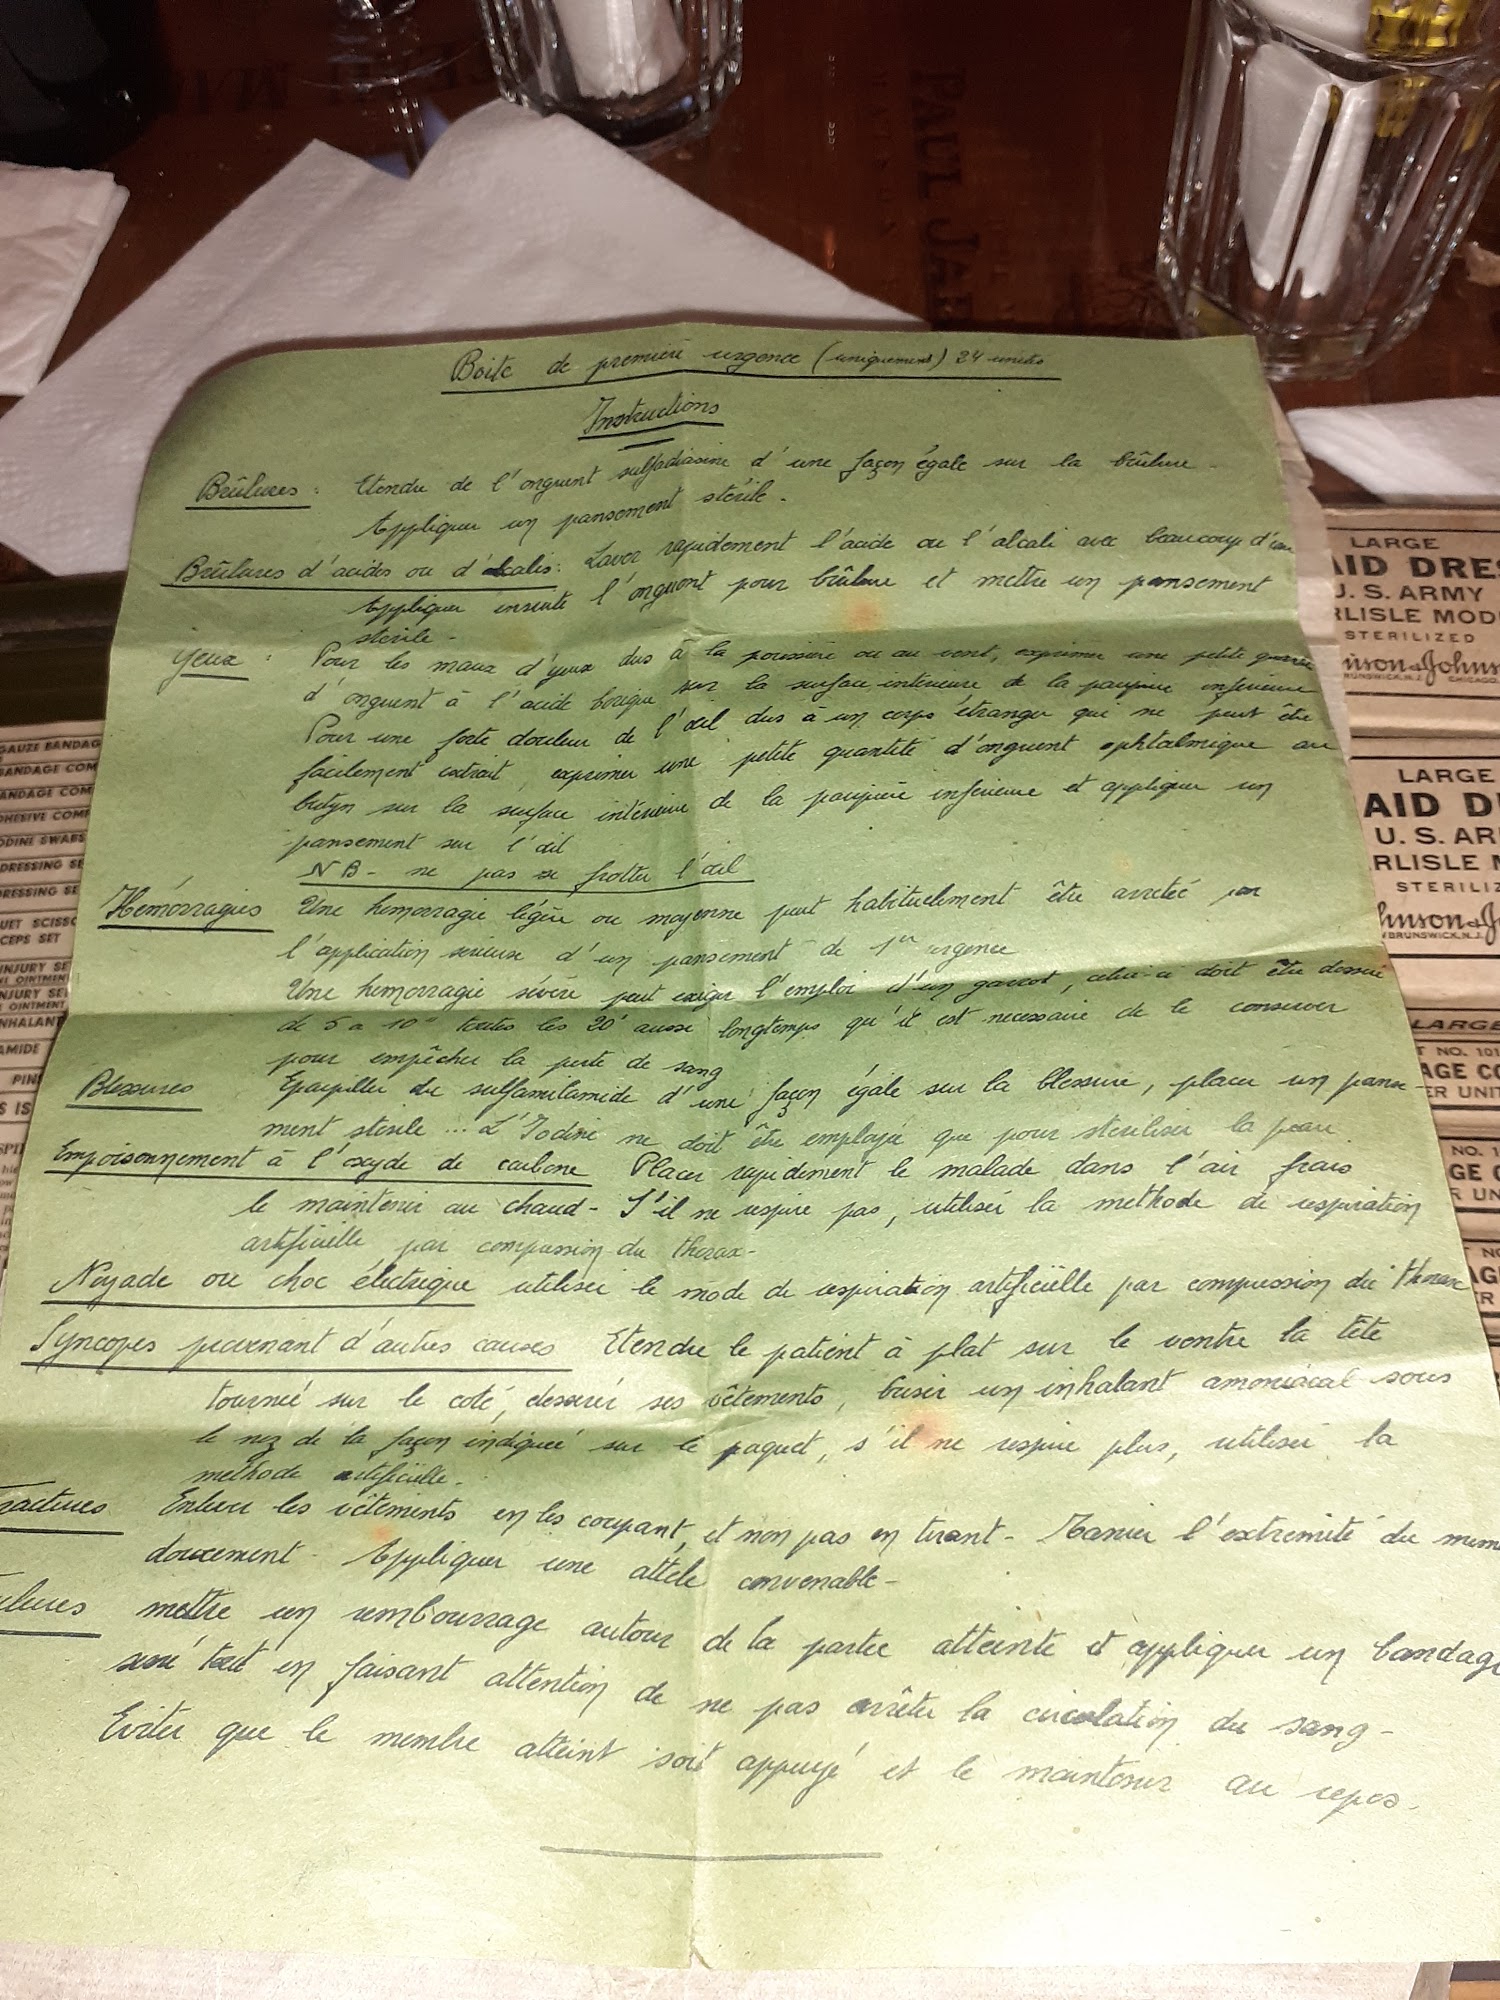 Boite de première urgence (uniquement) 24 unités
Instructions
Brûlures : Etendre de l'onguent sulfadiasine d'une façon égale sur la brûlure -
Appliquer un pansement stérile -
Brûlures d'acides ou d'alcalis : Laver rapidement l'acide ou l'alcali avec beaucoup d'eau
Appliquer ensuite l'onguent pour brûlure et mettre un pansement
stérile -
Yeux : Pour les maux d'yeux dus à la poussière ou au vent, exprimer une petite
d'onguent à l'acide borique sur la surface intérieure de la paupière inférieure
Pour une forte douleur de l'œil dus à un corps étranger qui ne peut être
facilement extrait, exprimer une petite quantité d'onguent ophtalmique au
butyn sur la surface intérieure de la paupière inférieure et appliquer un
pansement sur l'œil
NB - ne pas se frotter l'œil
Hémorragies Une hémorragie légère ou moyenne peut habituellement être arretée par
l'application sérieuse d'un pansement de 1er urgence
Une hemorragie sévère peut exiger l'emploi d'un garrot, celui-ci doit être desserré
de 5 a 10" toutes les 20' aussi longtemps qu'il est necessaire de le conserver
pour empêcher la perte de sang
Blessures Eparpiller du sulfamilamide d'une façon égale sur la blessure, placer un panse-
ment stérile ... L'Iodine ne doit être employée que pour stériliser la peau
Empoisonnement à l'oxyde de carbone Placer rapidement le malade dans l'air frais
le maintenir au chaud - S'il ne respire pas, utiliser la methode de respiration
artificielle par compression du thorax -
Noyade ou choc électrique utiliser le mode de respiration artificielle par compression du thorax
Syncopes provenant d'autres causes Etendre le patient à plat sur le ventre la tête
tournée sur le coté, desserrer ses vêtements, briser un inhalant amoniacal sous
le nez de la façon indiquée sur le paquet, s'il ne respire plus, utiliser la
méthode artificielle -
ractures Enlever les vêtements en les coupant, et non pas en tirant - Manier l'extremité du mem
doucement - Appliquer une attele convenable -
lures mettre un rembourrage autour de la partie atteinte et appliquer un bandage
serré tout en faisant attention de ne pas arrêter la circulation du sang -
Eviter que le membre atteint soit appuyé et le maintenir au repos.
PAUL JA
LARGE
AID DRES
U. S. ARMY
RLISLE MOD
STERILIZED
nson & Johns
BRUNSWICK, N.J. CHICAGO
LARGE
AID D
U. S. AR
RLISLE M
STERILIZ
hnson & J
BRUNSWICK, N.J.
LARGE
T NO. 101
AGE CO
ER UNIT
NO. 1
GE C
R UN
GAUZE BANDAG
BANDAGE COM
BANDAGE COM
DHESIVE COMP
ODINE SWABS
DRESSING SE
DRESSING SE
UET SCISSO
CEPS SET
INJURY SE
E OINTMEN
NJURY SE
OINTMEN
NHALANT
AMIDE
PIN
S IS